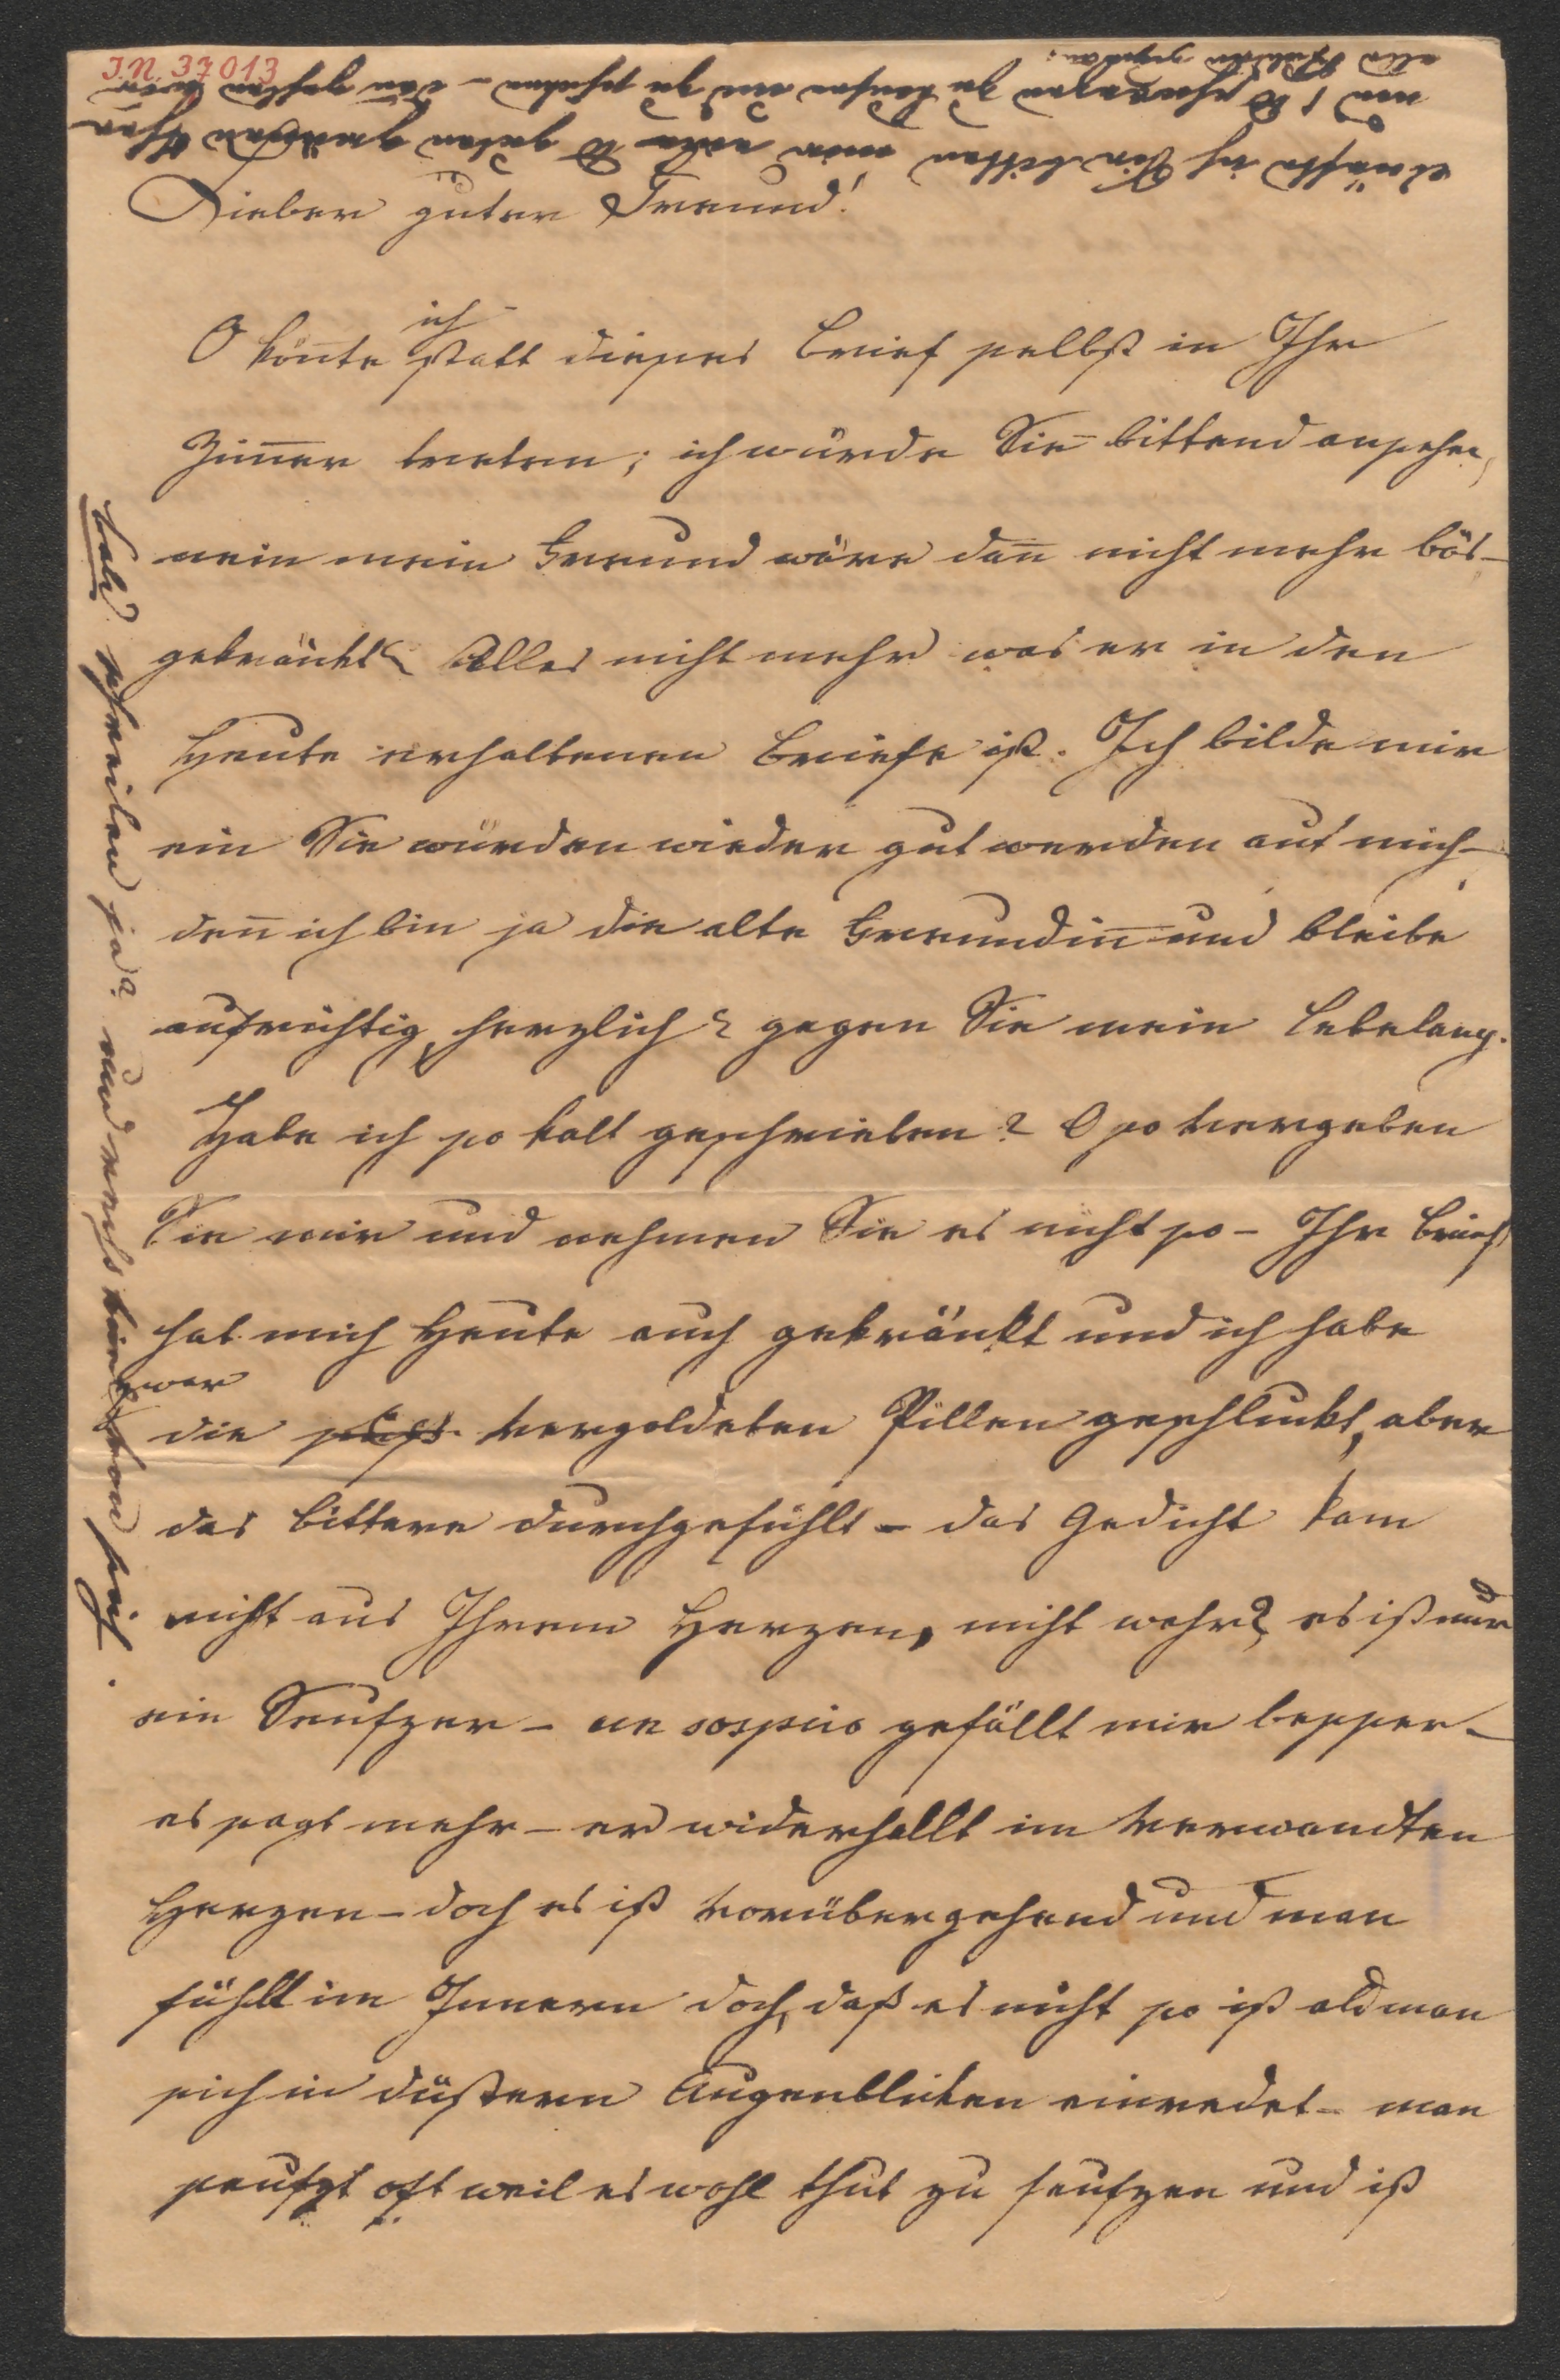 I.N. 37013
möchte ich Sie bitten mir guten grünen Thee
und 1 schwarzen zu kaufen und zu schicken
Lieber guter Freund!
O könnte ich statt dieses Brief selbst in Ihr
Zim̄er treten; ich würde Sie bittend ansehen,
nein mein Freund wäre dan̄ nicht mehr bös-
gekränkt Alles nicht mehr was er in den
Heute erhaltenen Briefe ist. Ich bilde mir
ein Sie würden wieder gut werden auf mich-
den̄ ich bin ja die alte Freundin̄ und bleibe
aufrichtig, herzlich gegen Sie mein Lebelang.
Habe ich so kalt geschrieben? O so vergeben
Sie mir und nehmen Sie es nicht so - Ihr Brief
hat mich Heute auch gekränkt und ich habe
zwar
die vergoldeten Pillen geschluckt, aber
das bittere durchgefühlt - das Gedicht kam
nicht aus Ihrem Herzen, nicht wahr? es ist nur
ein Seufzer - un sospiro gefällt mir besser -
es sagt mehr - er widerhallt im verwandten
Herzen - doch es ist vorübergehend und man
fühlt im Innern doch, daß es nicht so ist als man
sich in düstern Augenblicken einredet - man
seufzt oft weil es wohl thut zu seufzen und ist
bald schreiben ja? und recht